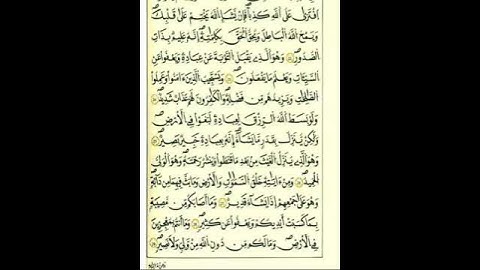 افْتَرَىٰ عَلَى اللَّهِ كَذِبًا فَإِن يَشَإِ اللَّهُ يَخْتِمْ عَلَىٰ قَلْبِكَ
وَيَمْحُ اللَّهُ الْبَاطِلَ وَيُحِقُّ الْحَقَّ بِكَلِمَاتِهِ إِنَّهُ عَلِيمٌ بِذَاتِ
الصُّدُورِ وَهُوَ الَّذِي يَقْبَلُ التَّوْبَةَ عَنْ عِبَادِهِ وَيَعْفُو عَنِ
السَّيِّئَاتِ وَيَعْلَمُ مَا تَفْعَلُونَ وَيَسْتَجِيبُ الَّذِينَ آمَنُوا وَعَمِلُوا
الصَّالِحَاتِ وَيَزِيدُهُم مِّن فَضْلِهِ وَالْكَافِرُونَ لَهُمْ عَذَابٌ شَدِيدٌ
وَلَوْ بَسَطَ اللَّهُ الرِّزْقَ لِعِبَادِهِ لَبَغَوْا فِي الْأَرْضِ
وَلَٰكِن يُنَزِّلُ بِقَدَرٍ مَّا يَشَاءُ إِنَّهُ بِعِبَادِهِ خَبِيرٌ بَصِيرٌ
وَهُوَ الَّذِي يُنَزِّلُ الْغَيْثَ مِن بَعْدِ مَا قَنَطُوا وَيَنشُرُ رَحْمَتَهُ وَهُوَ الْوَلِيُّ
الْحَمِيدُ وَمِنْ آيَاتِهِ خَلْقُ السَّمَاوَاتِ وَالْأَرْضِ وَمَا بَثَّ فِيهِمَا مِن دَابَّةٍ
وَهُوَ عَلَىٰ جَمْعِهِمْ إِذَا يَشَاءُ قَدِيرٌ وَمَا أَصَابَكُم مِّن مُّصِيبَةٍ
فَبِمَا كَسَبَتْ أَيْدِيكُمْ وَيَعْفُو عَن كَثِيرٍ وَمَا أَنتُم بِمُعْجِزِينَ
فِي الْأَرْضِ وَمَا لَكُم مِّن دُونِ اللَّهِ مِن وَلِيٍّ وَلَا نَصِيرٍ